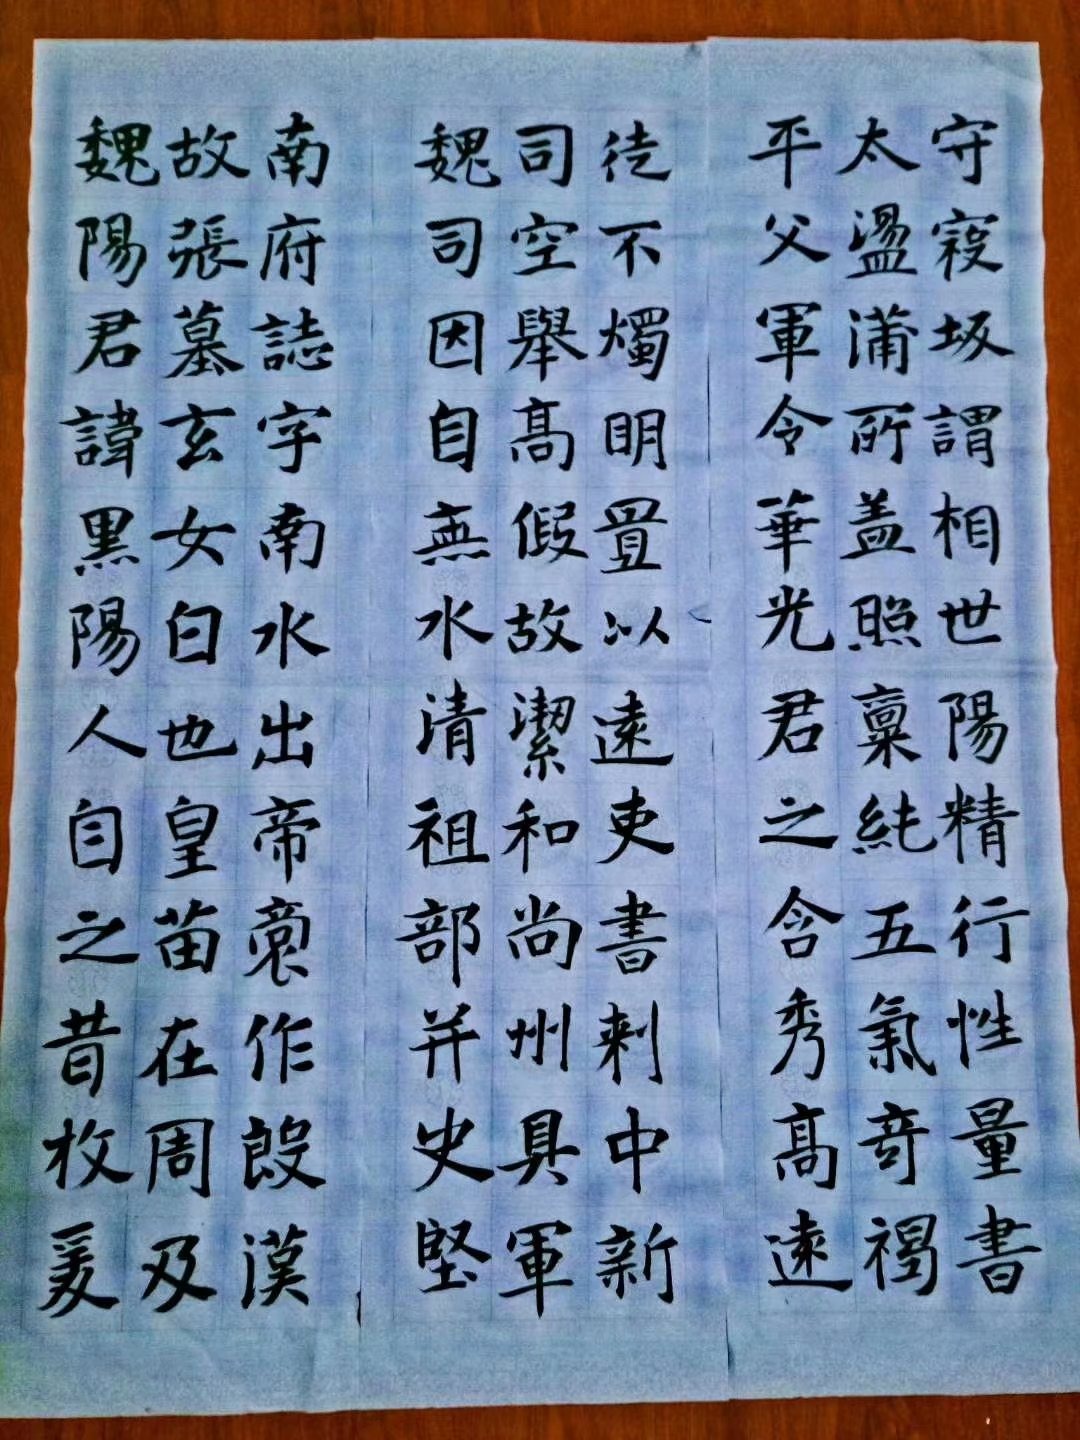 魏故南
陽張府
君墓誌
諱玄字
黑女南
陽白水
人也出
自皇帝
之苗裔
昔在作
牧周殷
爰及漢
魏司徒
司空不
因舉燭
自高明
無假置
水故以
清潔遠
祖和吏
部尚書
并州刺
史具中
堅軍新
平太守
父盪寇
軍蒲坂
令所謂
華蓋相
光照世
君稟陽
之純精
含五行
秀氣性
高奇量
遠褐書